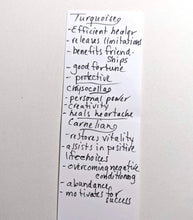 Turquoise
- Efficient healer
- releases limitations
- benefits friend-
ships
- good fortune
- protective
chrysocolla
- personal power
- creativity
- heals heartache
Carnelian
- restores vitality
- assists in positive
lifechoices
- overcoming negative
conditioning
- abundance
- motivates for
success